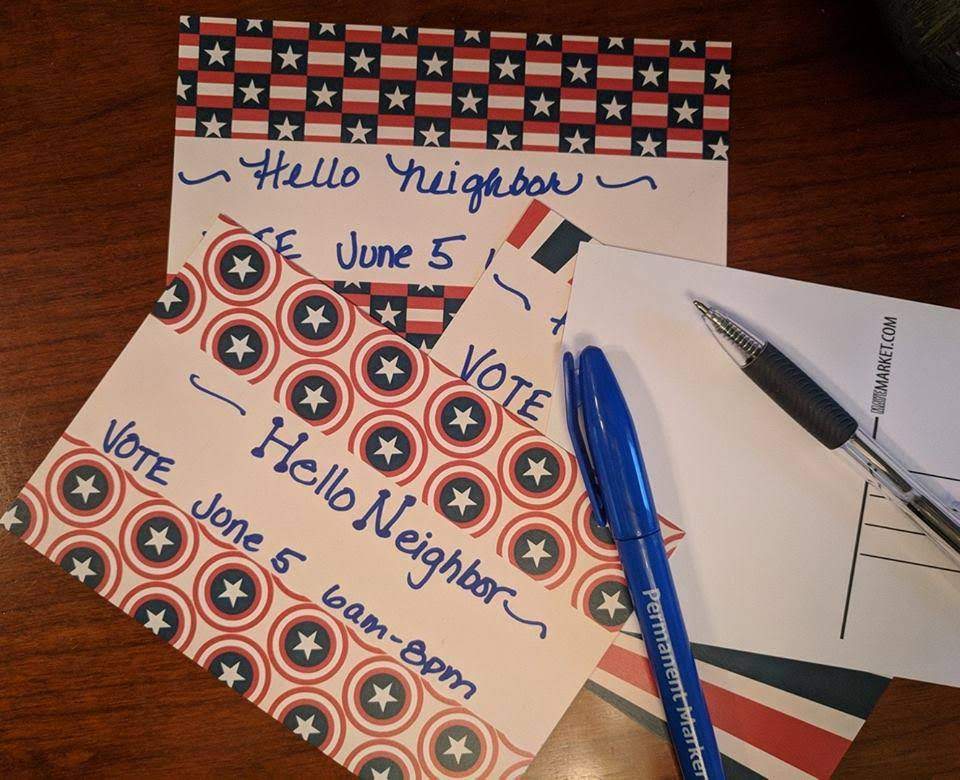 ~ Hello Neighbor ~
June 5
~ Hello Neighbor ~
VOTE June 5 6am-8pm
VOTE
MARKET.COM
Permanent Marker